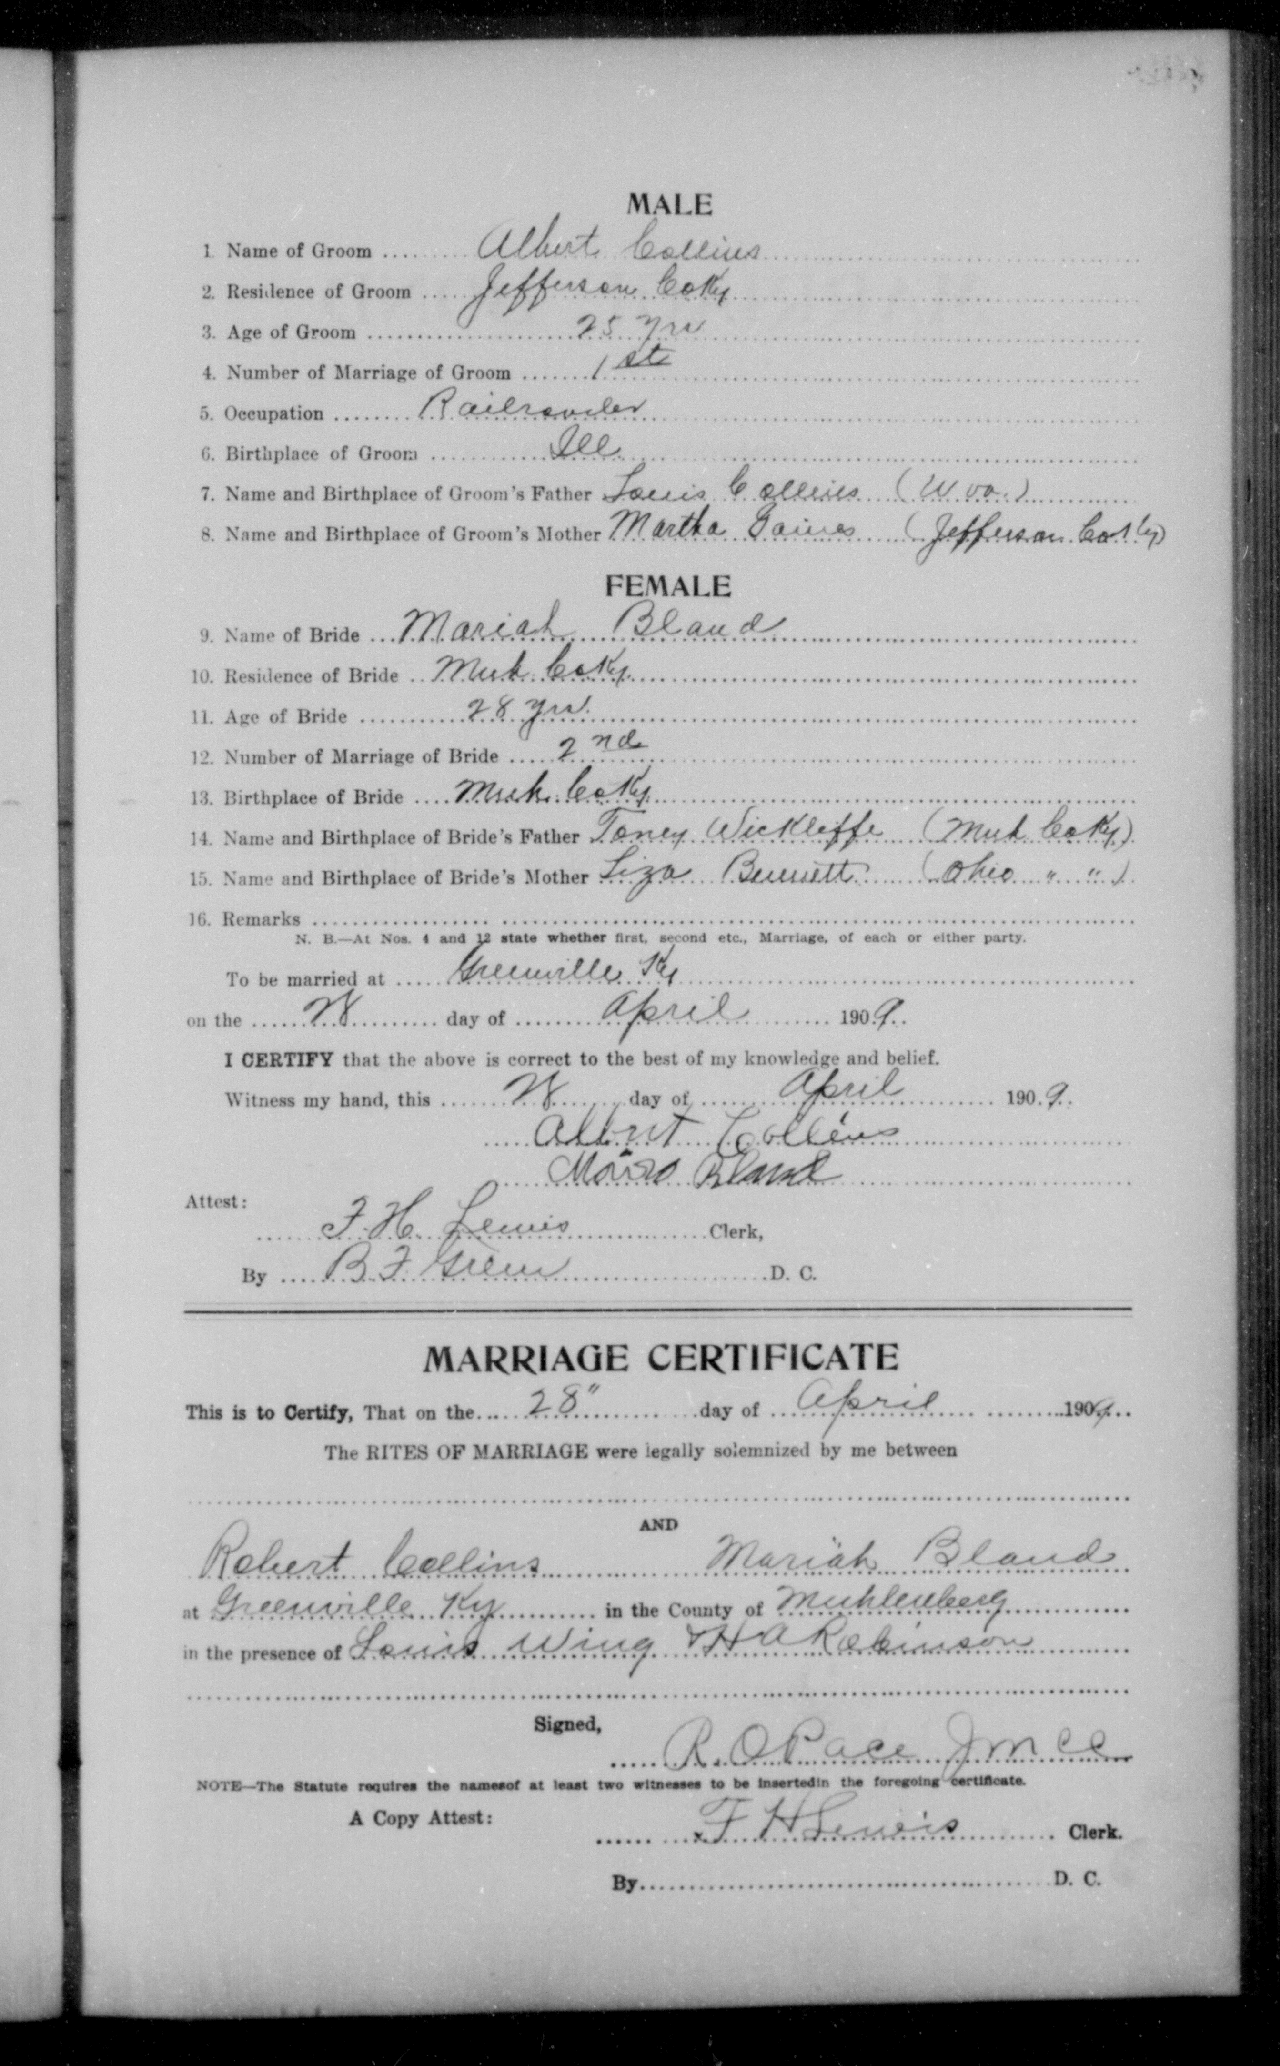 MALE
1. Name of Groom Albert Collins
2. Residence of Groom Jefferson Co Ky
3. Age of Groom 25 yrs
4. Number of Marriage of Groom 1st
5. Occupation Railroader
6. Birthplace of Groom Ill
7. Name and Birthplace of Groom's Father Louis Collins (W va.)
8. Name and Birthplace of Groom's Mother Martha Gaines (Jefferson Co Ky)
FEMALE
9. Name of Bride Mariah Bland
10. Residence of Bride Muh Co Ky
11. Age of Bride 28 yrs.
12. Number of Marriage of Bride 2nd
13. Birthplace of Bride Muh Co Ky
14. Name and Birthplace of Bride's Father Toney Wickliffe (Muh Co Ky)
15. Name and Birthplace of Bride's Mother Liza Bennett (Ohio " ")
16. Remarks
N. B.—At Nos. 4 and 12 state whether first, second etc., Marriage, of each or either party.
To be married at Greenville Ky
on the 28 day of April 1909.
I CERTIFY that the above is correct to the best of my knowledge and belief.
Witness my hand, this 28 day of April 1909.
Albert Collins
Bland
Attest:
F. H. Lewis Clerk,
By B F Green D. C.
MARRIAGE CERTIFICATE
This is to Certify, That on the 28" day of April 1909
The RITES OF MARRIAGE were legally solemnized by me between
AND
Robert Collins Mariah Bland
at Greenville Ky in the County of Muhlenberg
in the presence of Louis Wing & H A Robinson
Signed,
R. O Pace J M C C
NOTE—The Statute requires the namesof at least two witnesses to be insertedin the foregoing certificate.
A Copy Attest:
F H Lewis Clerk.
By D. C.